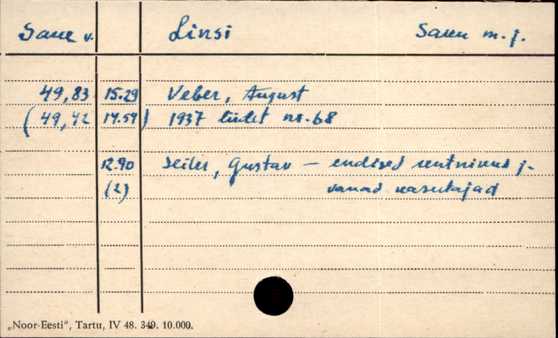 Saue v. Linsi Saue m. j.
49,83 15.29 Veber, August
(49,42 14.59) 1937 liidet nr. 68
12.90 Seiler, Gustav – endised rentnikud j.
(2) vanad kasutajad
„Noor-Eesti", Tartu, IV 48. 349. 10.000.